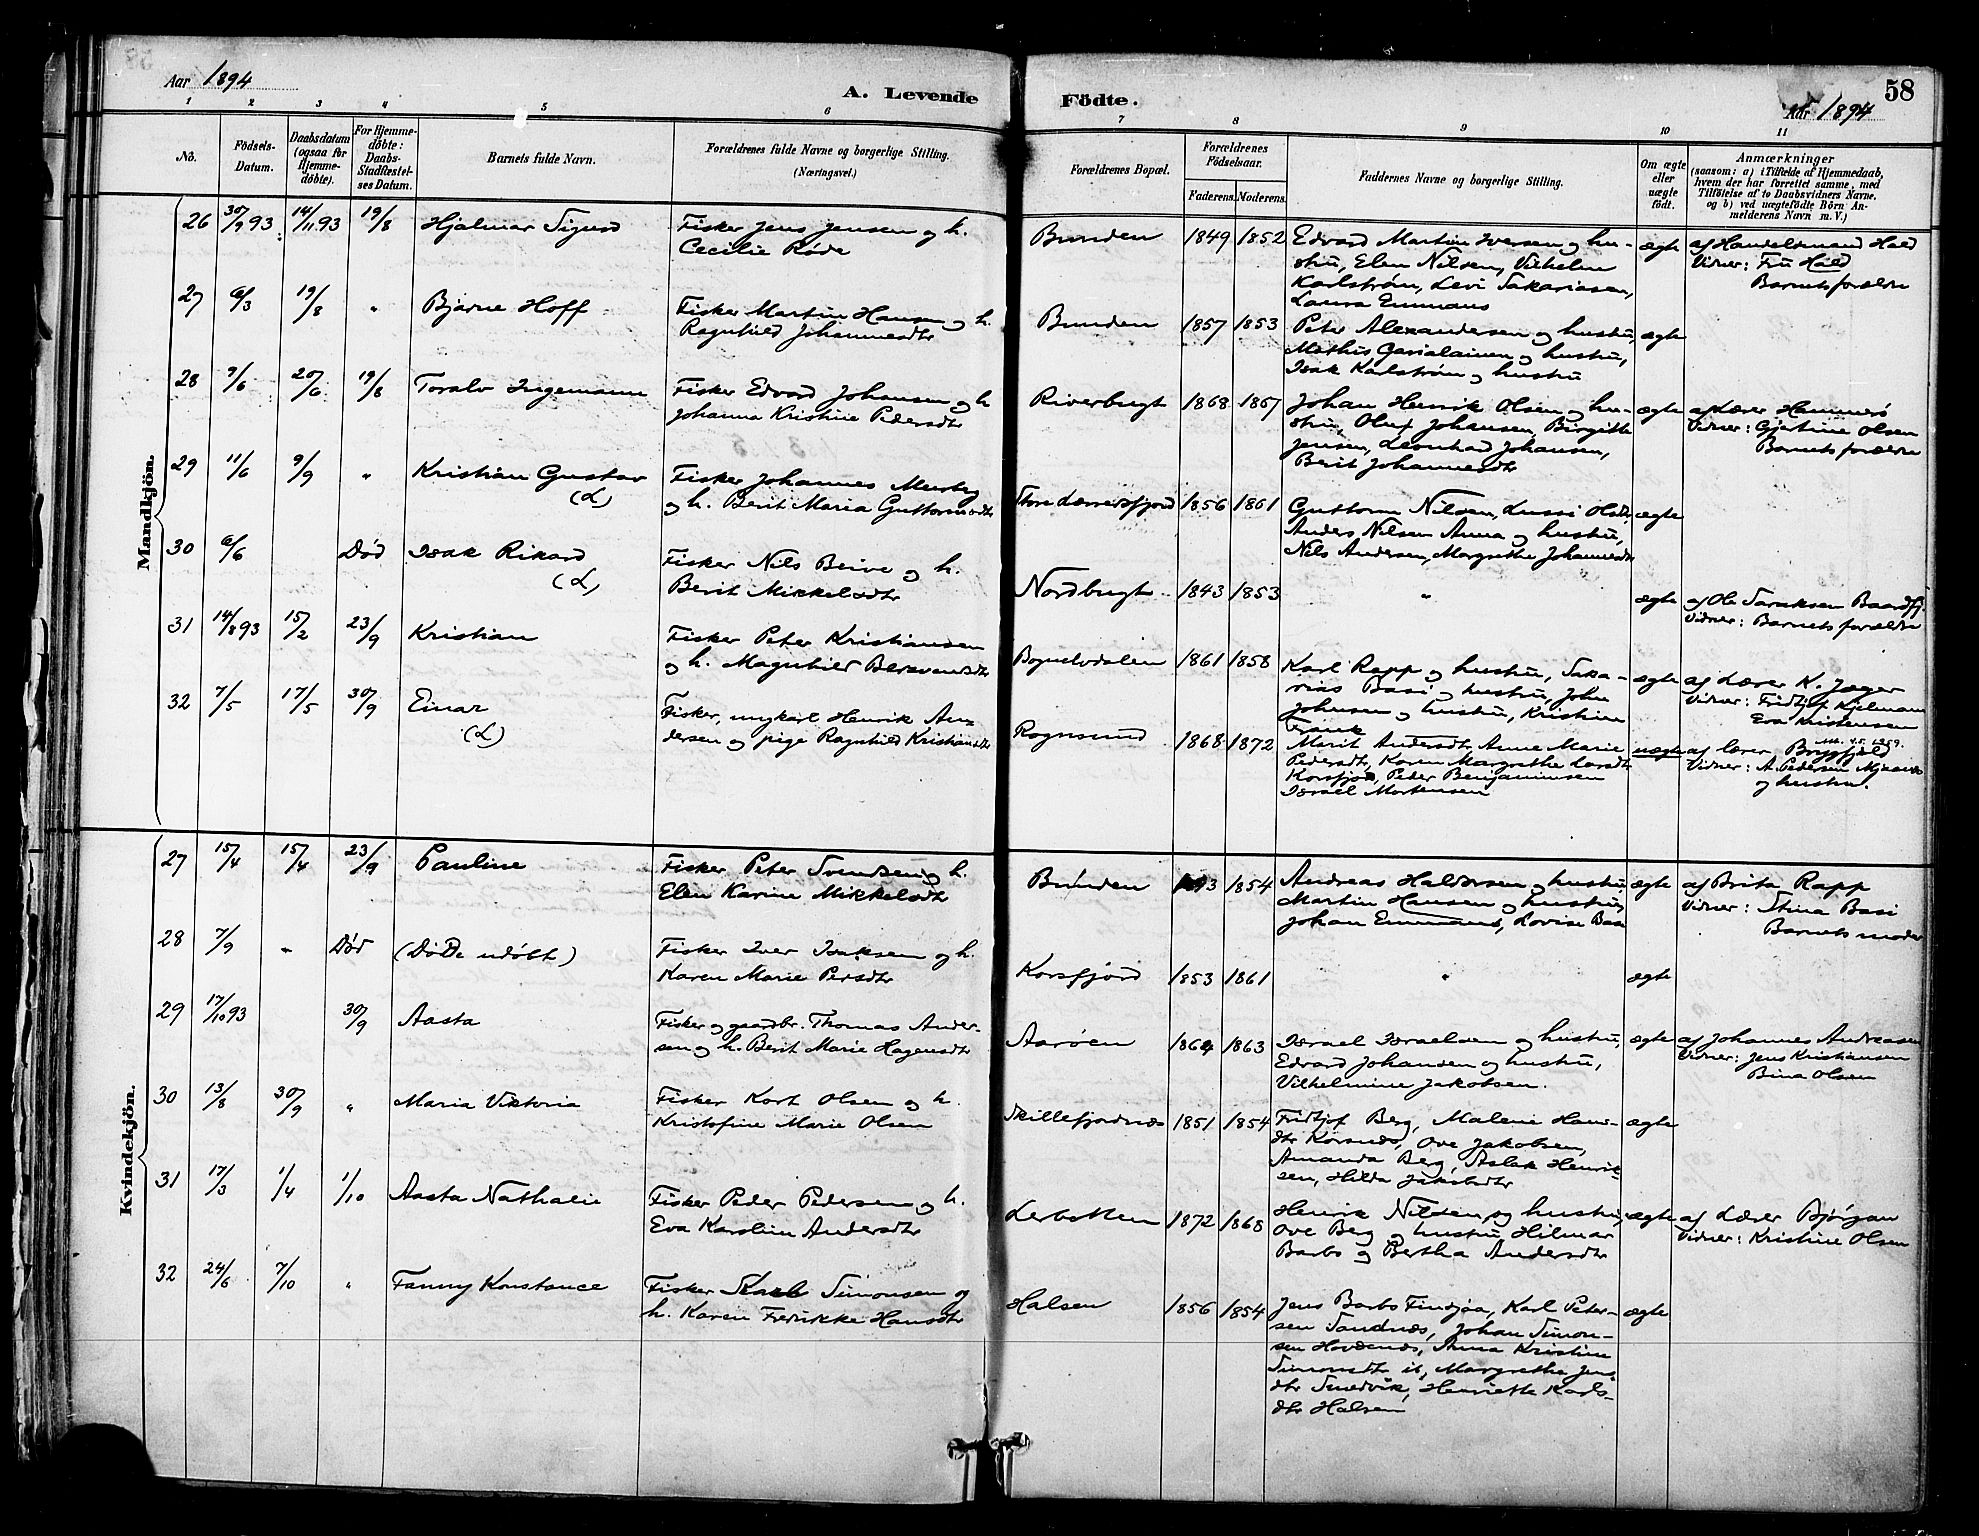 Aar 1894
A. Levende
Födte.
58
Aar 1894
1 2 3 4 5 6 7 8 9 10 11
No.
Födsels-
Datum.
Daabsdatum
(ogsaa for
Hjemme-
døbte).
For Hjemme-
døbte:
Daabs-
Stadfæstel-
ses Datum.
Barnets fulde Navn.
Forældrenes fulde Navne og borgerlige Stilling.
(Næringsvei.)
Forældrenes Bopæl.
Forældrenes
Födselsaar.
Faderens. Moderens.
Faddernes Navne og borgerlige Stilling.
Om ægte
eller
uægte
født.
Anmærkninger
(saasom: a) i Tilfælde af Hjemmedaab,
hvem der har forrettet samme, med
Tilføielse af to Daabsvidners Navne.
og b) ved uægtefødte Börn An-
melderens Navn m. V.)
Mandkjön.
26 30/9 93 14/11 93 19/8 Hjalmar Sigurd
Fisker Jens Jensen og h.
Cecilie Røde
Bunden 1849 1852
Edvard Martin Iversen og hu-
stru, Elen Nilsen, Vilhelm
Karlstrøm, Levi Sakariasen,
Laura Emmaus
ægte
af Handelsmand Hald
Vidner: Fru Hald
Barnets forældre
27 6/3 19/8 " Bjarne Hoff
Fisker Martin Hansen og h.
Ragnhild Johannesdtr
Bunden 1857 1853
Peter Alexandersen og hustru,
Mathis Gavialainen og hustru,
Isak Karlstrøm og hustru
ægte
28 9/6 20/6 19/8 Toralv Ingemann
Fisker Edvard Johansen og h
Johanna Kristine Pedersdtr
Riverbugt 1868 1867
Johan Henrik Olsen og hu-
stru, Oluf Johansen, Birgitte
Jensen, Leonhard Johansen,
Berit Johannesdtr
ægte
af Lærer Hammerø
Vidner: Gjertine Olsen
Barnets forældre
29 11/6 9/9 " Kristian Gustav
(L)
Fisker Johannes Murberg
og h. Berit Maria Guttormsdtr
Store Lerresfjord 1856 1861
Guttorm Nilsen, Lussi Olsdtr,
Anders Nilsen Anna og hustru,
Nils Andersen, Margrethe Johannesdtr
ægte
30 6/6 Død Isak Rikard
(L)
Fisker Nils Beive og h.
Berit Mikkelsdtr
Nordbugt 1843 1853
"
ægte
af Ole Saraksen Baardfj.
Vidner: Barnets forældre
31 14/8 93 15/2 23/9 Kristian
Fisker Peter Kristiansen
og h. Magnhild Beravensdtr
Bognelvdalen 1861 1858
Karl Rapp og hustru, Saka-
rias Basi og hustru, John
Johnsen og hustru, Kristine
Frank
ægte
af Lærer K. Jæger
Vidner: Fridtjof Kjelmann
Eva Kristensen
32 7/5 17/5 30/9 Einar
(L)
Fisker, ungkarl Henrik An-
dersen og pige Ragnhild Kristiansdtr
Rognsund 1868 1872
Marit Andersdtr, Anne Marie
Pedersdtr, Karen Margrethe Larsdtr
Korsfjord, Peder Benjaminsen
Israel Mortensen
uægte
af lærer Brygfjeld
Vidner: A. Pedersen
og hustru.
Kvindekjön.
27 15/4 15/4 23/9 Pauline
Fisker Peter Svendsen og h.
Elen Karine Mikkelsdtr
Bunden 1854
Andreas Haldorsen og hustru
Martin Hansen og hustru,
Johan Emmaus, Lovise Basi
ægte
af Brita Rapp
Vidner: Stina Basi
Barnets moder
28 7/9 " Død (Døde udøbt)
Fisker Iver Isaksen og h.
Karen Marie Persdtr
Korsfjord 1853 1861
"
ægte
29 17/10 93 30/9 Aasta
Fisker og gaardbr. Thomas Ander-
sen og h. Berit Marie Hagensdtr
Aarøen 1864 1863
Israel Israelsen og hustru,
Edvard Johansen og hustru,
Vilhelmine Jakobsen.
ægte
af Johannes Andreasen
Vidner: Jens Kristiansen
Bina Olsen
30 13/8 30/9 " Maria Viktoria
Fisker Kort Olsen og h.
Kristofine Marie Olsen
Skillefjordnes 1851 1854
Fridtjof Berg, Malene Hans-
dtr Korsnes, Ove Jakobsen,
Amanda Berg, Aslak Henrik-
sen, Hilda Jakobsdtr
ægte
31 17/3 1/4 1/10 Aasta Nathalie
Fisker Peder Pedersen og h.
Eva Karolin Andersdtr
Lerbotten 1872 1868
Henrik Nilsen og hustru,
Ove Berg og hustru Hilmar
Barbo og Bertha Andersdtr
ægte
af Lærer Bjørgan
Vidner: Kristine Olsen
32 24/6 7/10 " Fanny Konstance
Fisker Simonsen og
h. Karen Fredrikke Hansdtr
Halsen 1856 1854
Jens Barbo Findjøa, Karl Peter-
sen Sandnæs, Johan Simon-
sen Hovdenæs, Anna Kristine
Simonsdtr ib, Margrethe Jens-
dtr Smedvik, Henriette Karls-
dtr Halsen
ægte